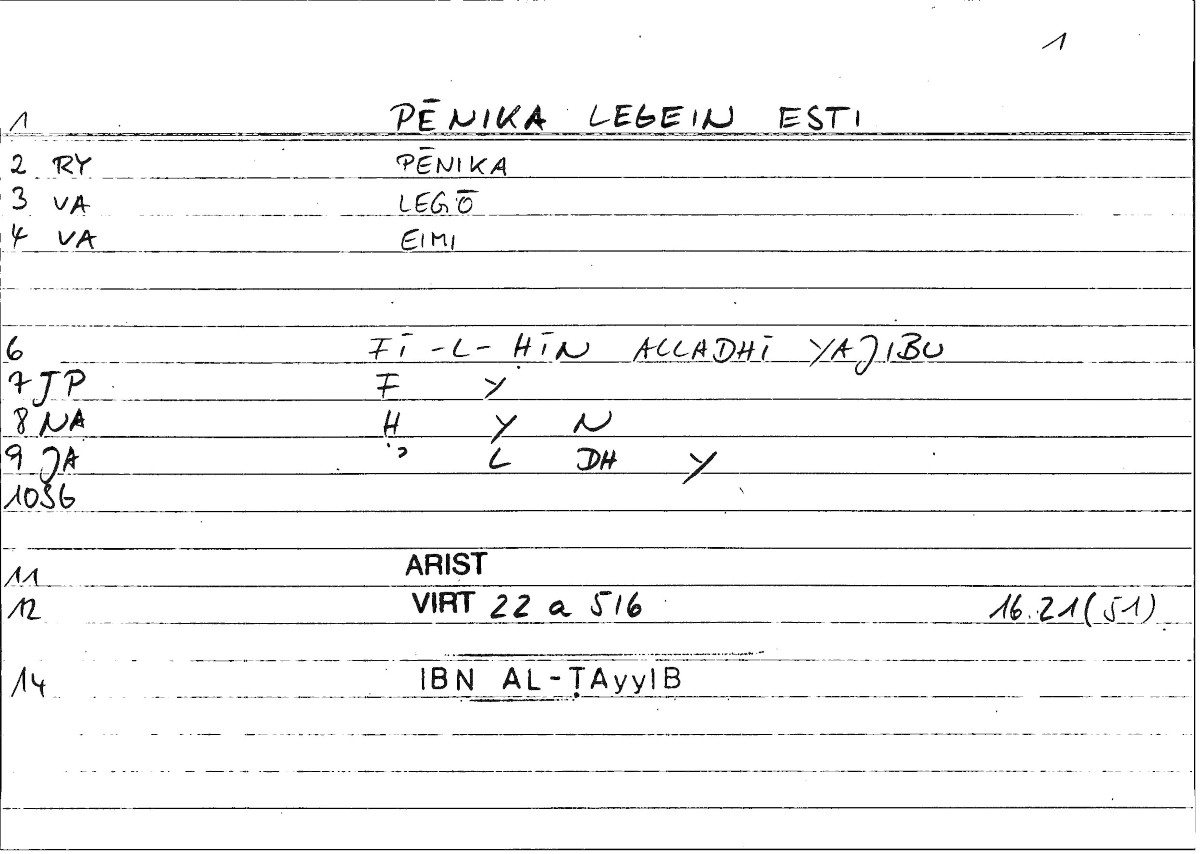 1
1 PĒNIKA LEGEIN ESTI
2 RY PĒNIKA
3 VA LEGŌ
4 VA EIMI
6 FĪ -L- ḤĪN ALLADHĪ YAJIBU
7 JP F Y
8 NA Ḥ Y N
9 JA ʾ L DH Y
10 SG
11 ARIST
12 VIRT 22 a 516 16.21 (51)
14 IBN AL-ṬAyyIB